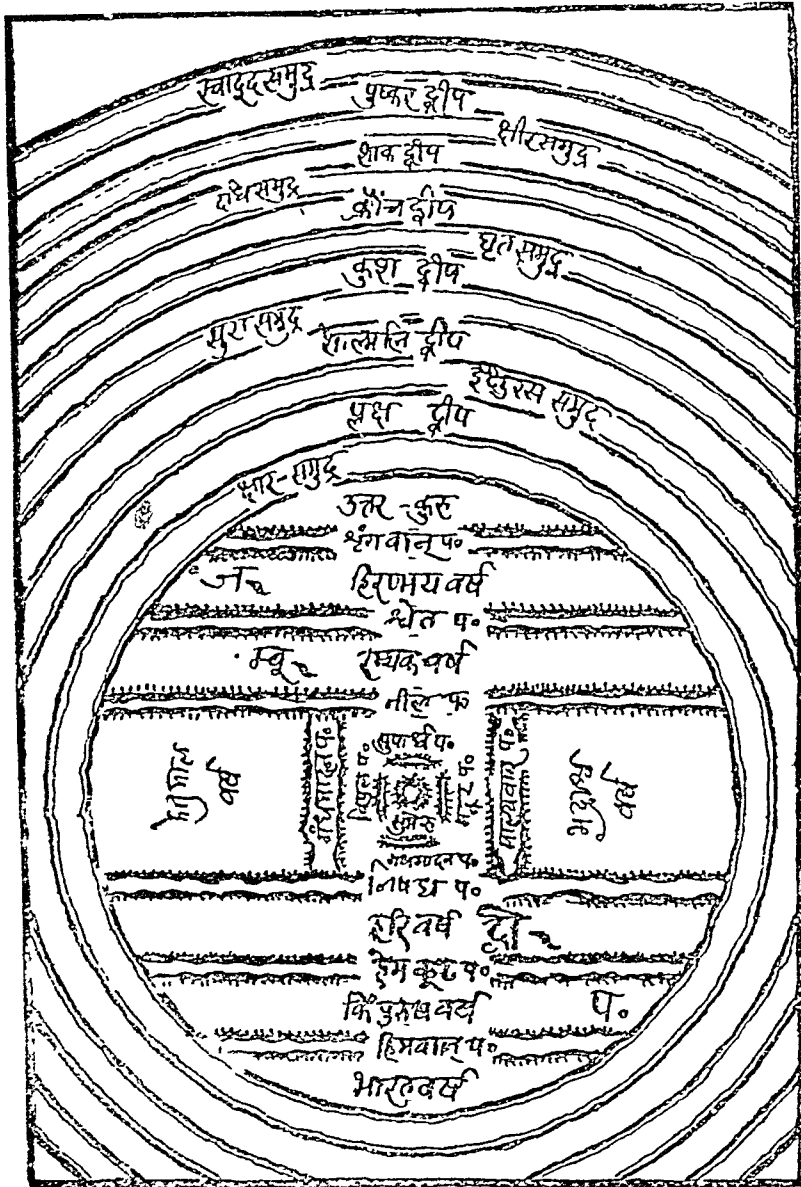 स्वादूदसमुद्र
पुष्कर द्वीप
क्षीरसमुद्र
शाक द्वीप
दधिसमुद्र
क्रौंच द्वीप
घृत समुद्र
कुश द्वीप
सुरा समुद्र
शाल्मलि द्वीप
ईक्षुरस समुद्र
प्लक्ष द्वीप
क्षार-समुद्र
उत्तर-कुरु
शृंगवान् प०
ज
हिरण्मय वर्ष
श्वेत प०
म्बू
रम्यक वर्ष
नील प०
सुपार्श्व प०
केतुमाल वर्ष
गंधमादन प०
विपुल प०
सुमेरु
मन्दर प०
माल्यवान् प०
भद्राश्व वर्ष
गंधमादन प०
निषध प०
हरि वर्ष द्वी
हेमकूट प०
किंपुरुष वर्ष प०
हिमवान् प०
भारतवर्ष